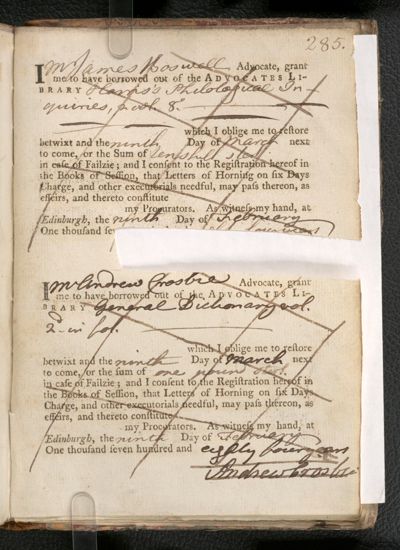 285.
I Mr James Boswell Advocate, grant
me to have borrowed out of the ADVOCATES LI-
BRARY Harris's Philological In
quiries, 2 vols 8º
which I oblige me to restore
betwixt and the ninth Day of March next
to come, or the Sum of Ten shill ster.
in case of Failzie; and I consent to the Registration hereof in
the Books of Session, that Letters of Horning on six Days
Charge, and other executorials needful, may pass thereon, as
effeirs, and thereto constitute
my Procurators. As witness my hand, at
Edinburgh, the ninth Day of February
One thousand sev
I Mr Andrew Crosbie Advocate, grant
me to have borrowed out of the ADVOCATES LI-
BRARY General Dictionary vol.
fol.
which I oblige me to restore
betwixt and the ninth Day of March next
to come, or the sum of one pound ster.
in case of Failzie; and I consent to the Registration hereof in
the Books of Session, that Letters of Horning on six Days
Charge, and other executorials needful, may pass thereon, as
effeirs, and thereto constitute
my Procurators. As witness my hand, at
Edinburgh, the ninth Day of February
One thousand seven hundred and eighty four years
Andrew Crosbie